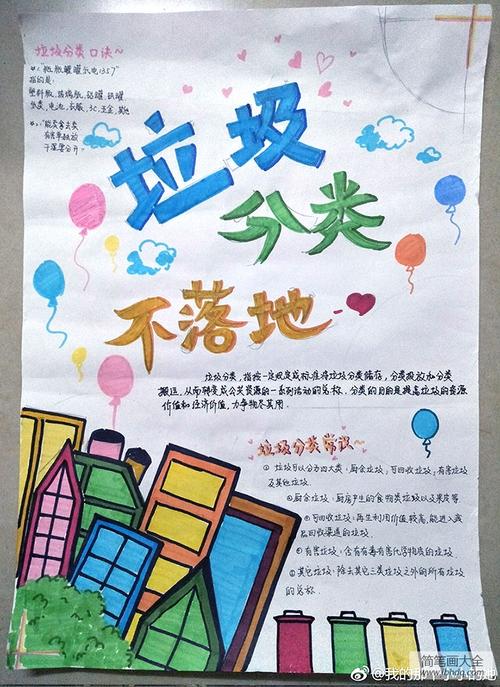 垃圾分类口诀~
指的是:
塑料瓶,玻璃瓶,铝罐,铁罐
纸类,电池,衣服,3C,五金,其他
垃圾
分类
不落地
垃圾分类,指按一定规定或标准将垃圾分类储存,分类投放和分类
搬运,从而转变成公共资源的一系列活动的总称.分类的目的是提高垃圾的资源
价值和经济价值,力争物尽其用.
垃圾分类常识~
①垃圾可以分为四大类:厨余垃圾,可回收垃圾,有害垃圾
及其他垃圾.
②厨余垃圾:厨房产生的食物类垃圾以及果皮等.
③可回收垃圾:再生利用价值较高,能进入废
品回收渠道的垃圾.
④有害垃圾:含有有毒有害化学物质的垃圾.
⑤其它垃圾:除去其它三类垃圾之外的所有垃圾
的总称.
简笔画大全
www.jbhdq.com